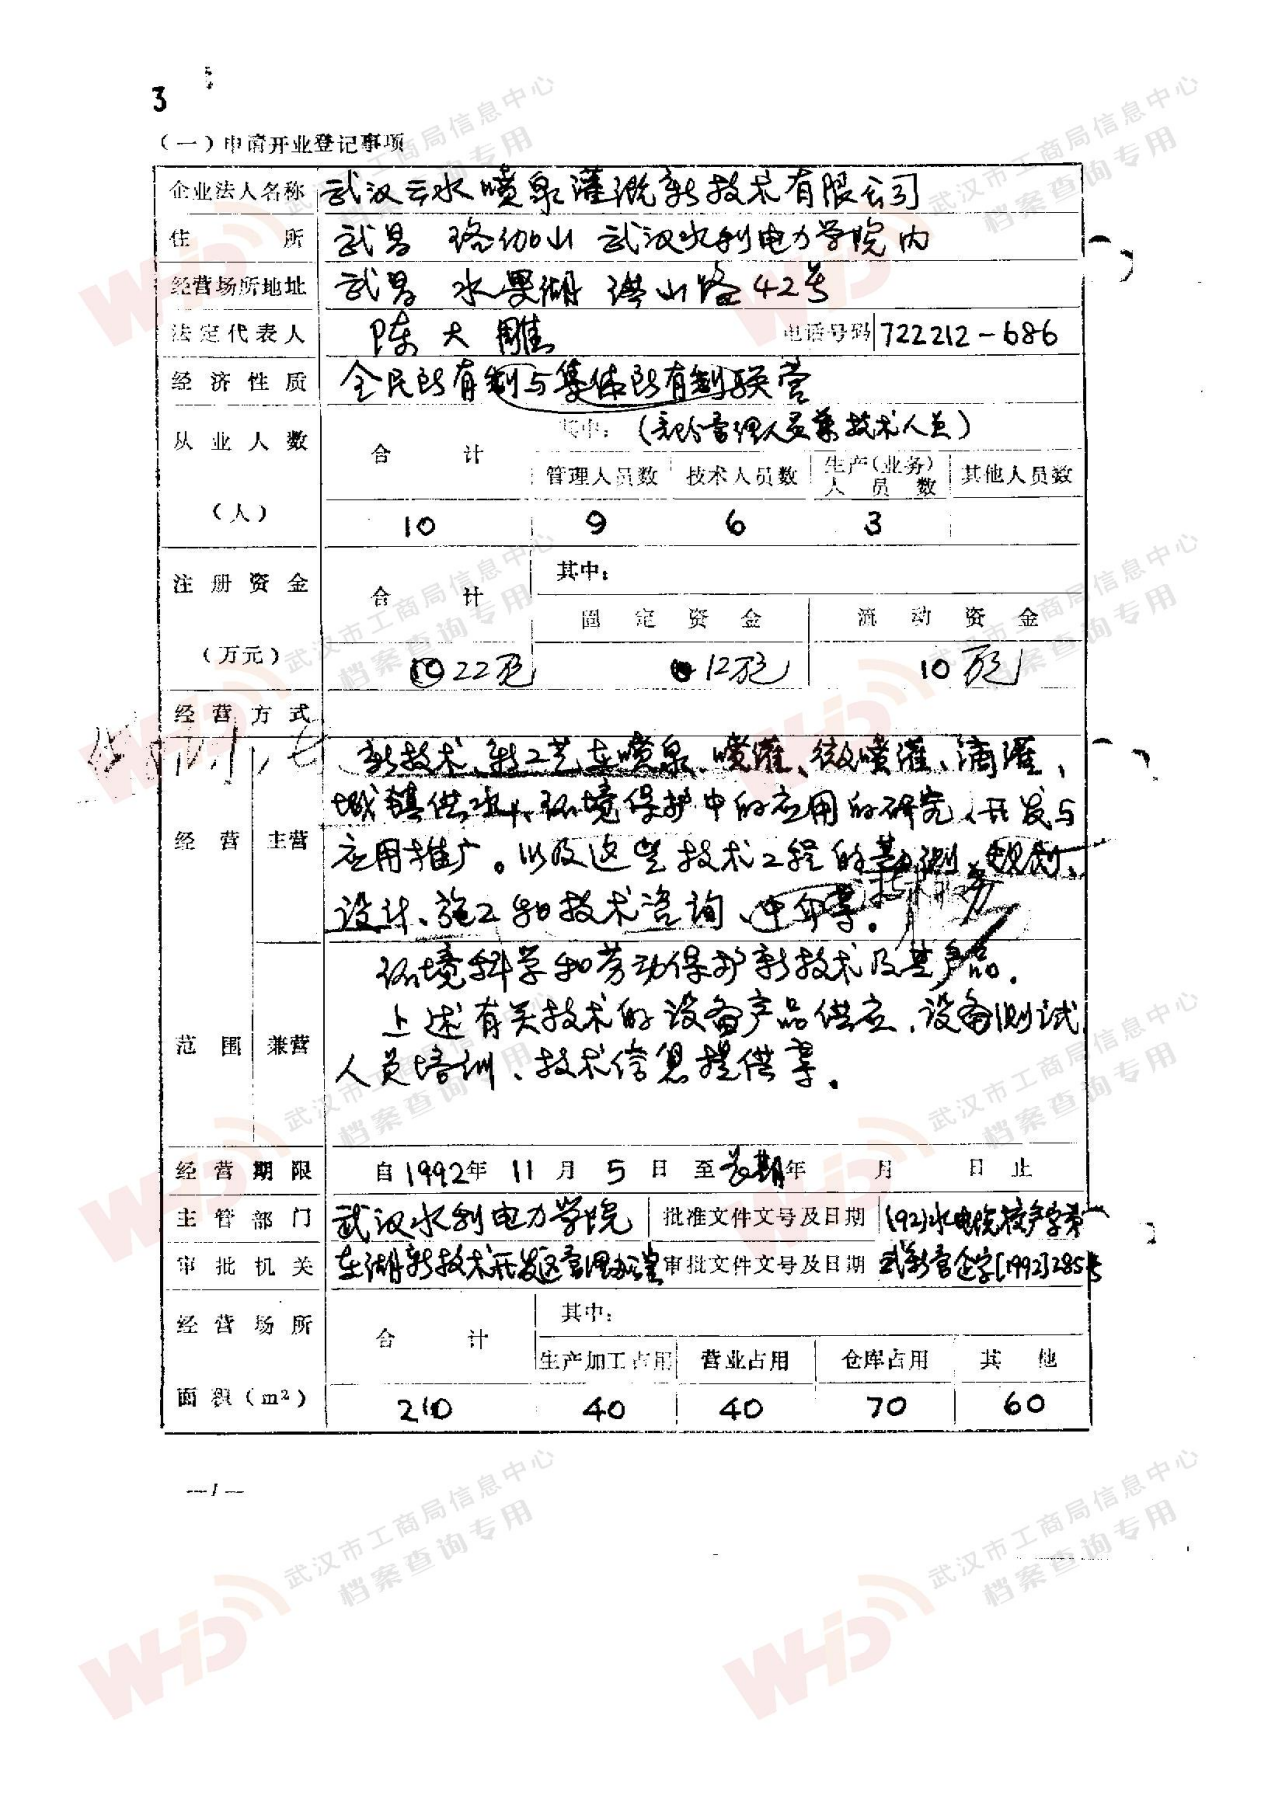 3
（一）申请开业登记事项
企业法人名称 武汉云水喷泉灌溉新技术有限公司
住 所 武昌 珞伽山 武汉水利电力学院内
经营场所地址 武昌 水果湖 洪山路42号
法定代表人 陈大雕 电话号码 722212-686
经济性质 全民所有制与集体所有制联营
从业人数（人） 合计 其中：（部分管理人员兼技术人员）
管理人员数 技术人员数 生产（业务）人员数 其他人员数
10 9 6 3
注册资金（万元） 合计 其中：
固定资金 流动资金
22万元 12万元 10万元
经营方式
经营范围 主营 新技术、新工艺在喷泉、喷灌、微喷灌、滴灌，
城镇供水、环境保护中的应用的研究、开发与
应用推广。以及这些技术工程的勘测、规划、
设计、施工和技术咨询、中介等。
技术服务
兼营 环境科学和劳动保护新技术及其产品.
上述有关技术的设备产品供应、设备测试
人员培训、技术信息提供等.
经营期限 自1992年11月5日至长期年 月 日止
主管部门 武汉水利电力学院 批准文件文号及日期 (92)水电院校产字第
审批机关 东湖新技术开发区管理办公室 审批文件文号及日期 武新管企字[1992]285号
经营场所面积（m²） 合计 其中：
生产加工占用 营业占用 仓库占用 其他
210 40 40 70 60
—1—
武汉市工商局信息中心
档案查询专用
WHD